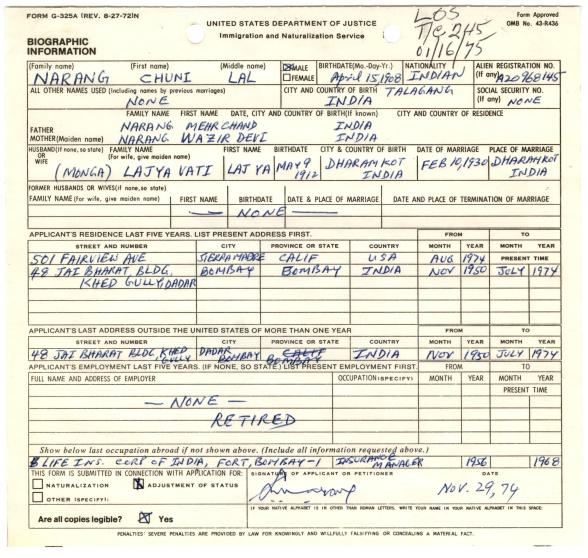 FORM G-325A (REV. 8-27-72)N
UNITED STATES DEPARTMENT OF JUSTICE
Immigration and Naturalization Service
LOS
T/C 245
01/16/75
Form Approved
OMB No. 43-R436
BIOGRAPHIC
INFORMATION
(Family name) (First name) (Middle name) MALE FEMALE BIRTHDATE(Mo.-Day-Yr.) NATIONALITY ALIEN REGISTRATION NO. (If any)
NARANG CHUNI LAL April 15, 1908 INDIAN A20968145
ALL OTHER NAMES USED (Including names by previous marriages) CITY AND COUNTRY OF BIRTH SOCIAL SECURITY NO. (If any)
NONE TALAGANG INDIA NONE
FAMILY NAME FIRST NAME DATE, CITY AND COUNTRY OF BIRTH(If known) CITY AND COUNTRY OF RESIDENCE
FATHER NARANG MEHR CHAND INDIA
MOTHER(Maiden name) NARANG WAZIR DEVI INDIA
HUSBAND(If none, so state) OR WIFE FAMILY NAME (For wife, give maiden name) FIRST NAME BIRTHDATE CITY & COUNTRY OF BIRTH DATE OF MARRIAGE PLACE OF MARRIAGE
(MONGA) LAJYA VATI LAJ YA MAY 9 1912 DHARAMKOT INDIA FEB 10, 1930 DHARAMKOT INDIA
FORMER HUSBANDS OR WIVES(if none, so state)
FAMILY NAME (For wife, give maiden name) FIRST NAME BIRTHDATE DATE & PLACE OF MARRIAGE DATE AND PLACE OF TERMINATION OF MARRIAGE
— NONE —
APPLICANT'S RESIDENCE LAST FIVE YEARS. LIST PRESENT ADDRESS FIRST. FROM TO
STREET AND NUMBER CITY PROVINCE OR STATE COUNTRY MONTH YEAR MONTH YEAR
501 FAIRVIEW AVE SIERRA MADRE CALIF USA AUG 1974 PRESENT TIME
48 JAI BHARAT BLDG, BOMBAY BOMBAY INDIA NOV 1950 JULY 1974
KHED GULLY, DADAR
APPLICANT'S LAST ADDRESS OUTSIDE THE UNITED STATES OF MORE THAN ONE YEAR FROM TO
STREET AND NUMBER CITY PROVINCE OR STATE COUNTRY MONTH YEAR MONTH YEAR
48 JAI BHARAT BLDG, KHED GULLY DADAR BOMBAY CALIF BOMBAY INDIA NOV 1950 JULY 1974
APPLICANT'S EMPLOYMENT LAST FIVE YEARS. (IF NONE, SO STATE.) LIST PRESENT EMPLOYMENT FIRST. FROM TO
FULL NAME AND ADDRESS OF EMPLOYER OCCUPATION (SPECIFY) MONTH YEAR MONTH YEAR
PRESENT TIME
— NONE —
RETIRED
Show below last occupation abroad if not shown above. (Include all information requested above.)
LIFE INS. CORP OF INDIA, FORT, BOMBAY-1 INSURANCE MANAGER 1956 1968
THIS FORM IS SUBMITTED IN CONNECTION WITH APPLICATION FOR: SIGNATURE OF APPLICANT OR PETITIONER DATE
NATURALIZATION ADJUSTMENT OF STATUS
OTHER (SPECIFY): NOV. 29, 74
Are all copies legible? Yes
IF YOUR NATIVE ALPHABET IS IN OTHER THAN ROMAN LETTERS, WRITE YOUR NAME IN YOUR NATIVE ALPHABET IN THIS SPACE:
PENALTIES: SEVERE PENALTIES ARE PROVIDED BY LAW FOR KNOWINGLY AND WILLFULLY FALSIFYING OR CONCEALING A MATERIAL FACT.